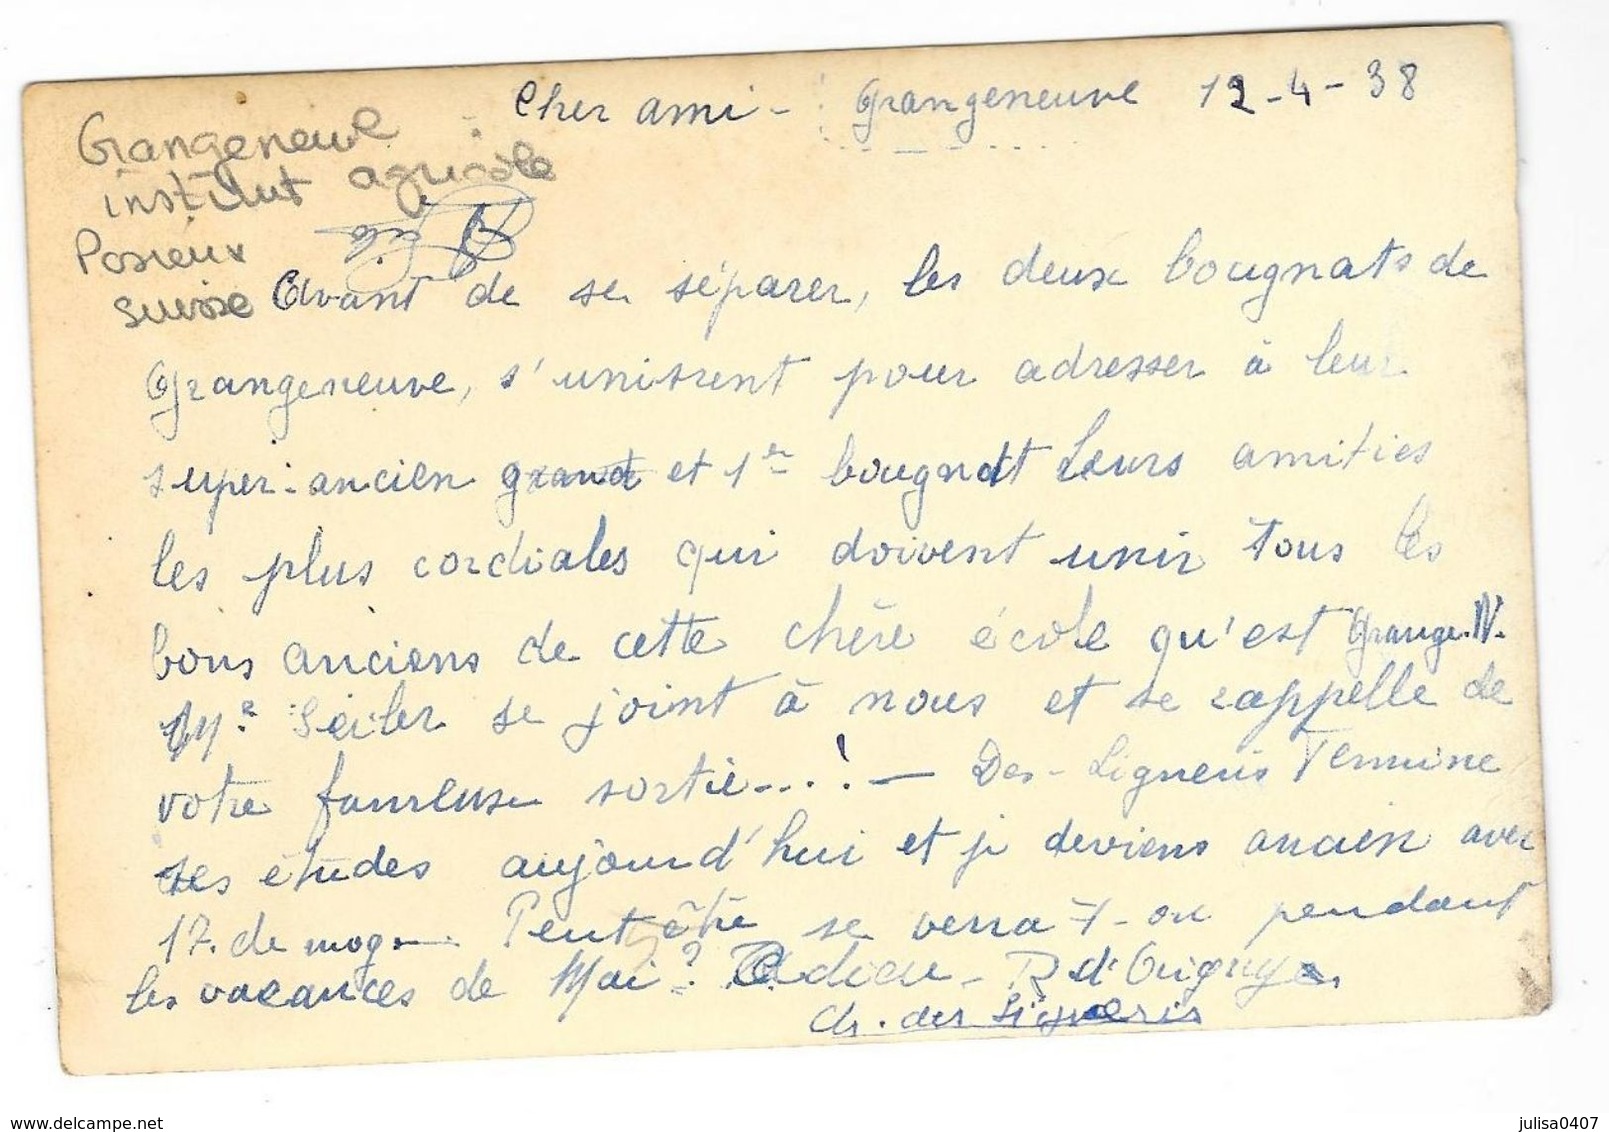 Cher ami - Grangeneuve 12-4-38
Grangeneuve
institut agricole
Posieux
suisse
Avant de se séparer, les deux bougnats de
Grangeneuve, s'unissent pour adresser à leur
super-ancien grand et 1er bougnat leurs amitiés
les plus cordiales qui doivent unir tous les
bons anciens de cette chère école qu'est Grange.N.
Mr Seiler se joint à nous et se rappelle de
votre fameuse sortie....! — Des-Ligneris Termine
ses études aujourd'hui et je deviens ancien avec
17. de moy. Peut être se verra-t-on pendant
les vacances de Mai? Adieu - R d'Origny
Ch. des Ligneris
julisa0407
www.delcampe.net